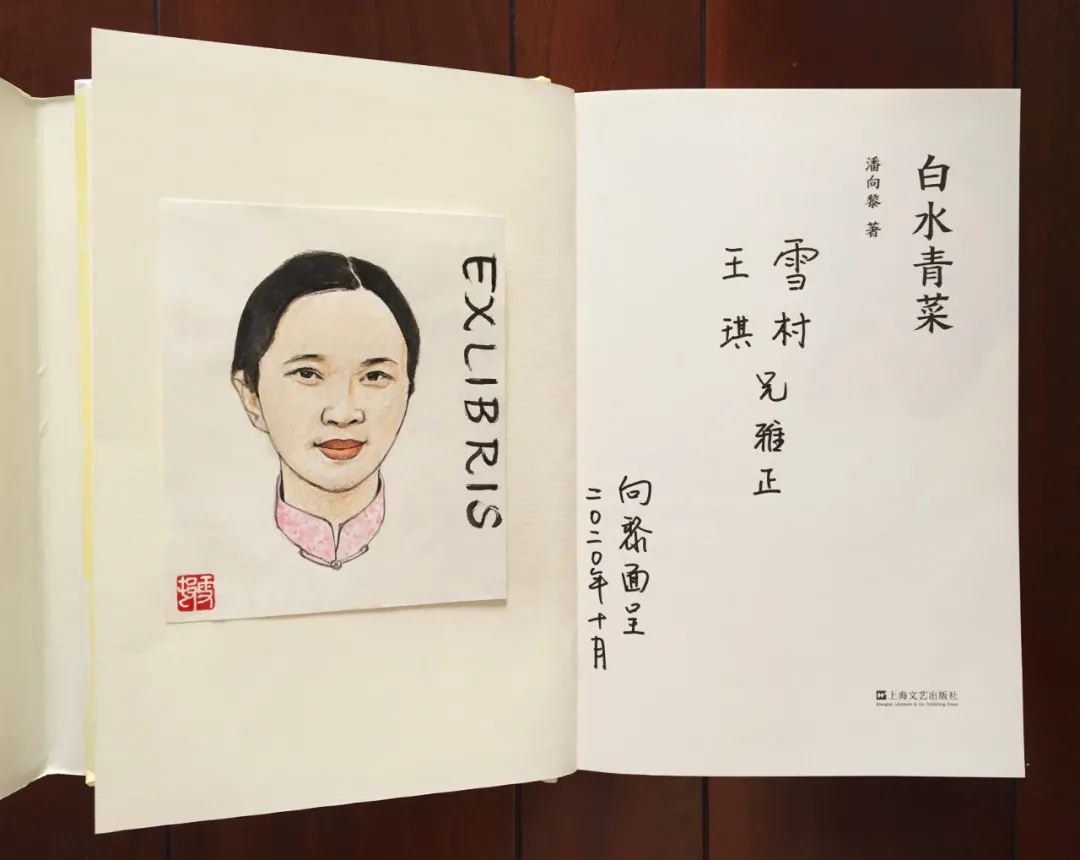 EXLIBRIS
白水青菜
潘向黎 著
雪村
王琪
兄雅正
向黎面呈
二〇二〇年十月
上海文艺出版社
Shanghai Literature & Art Publishing House